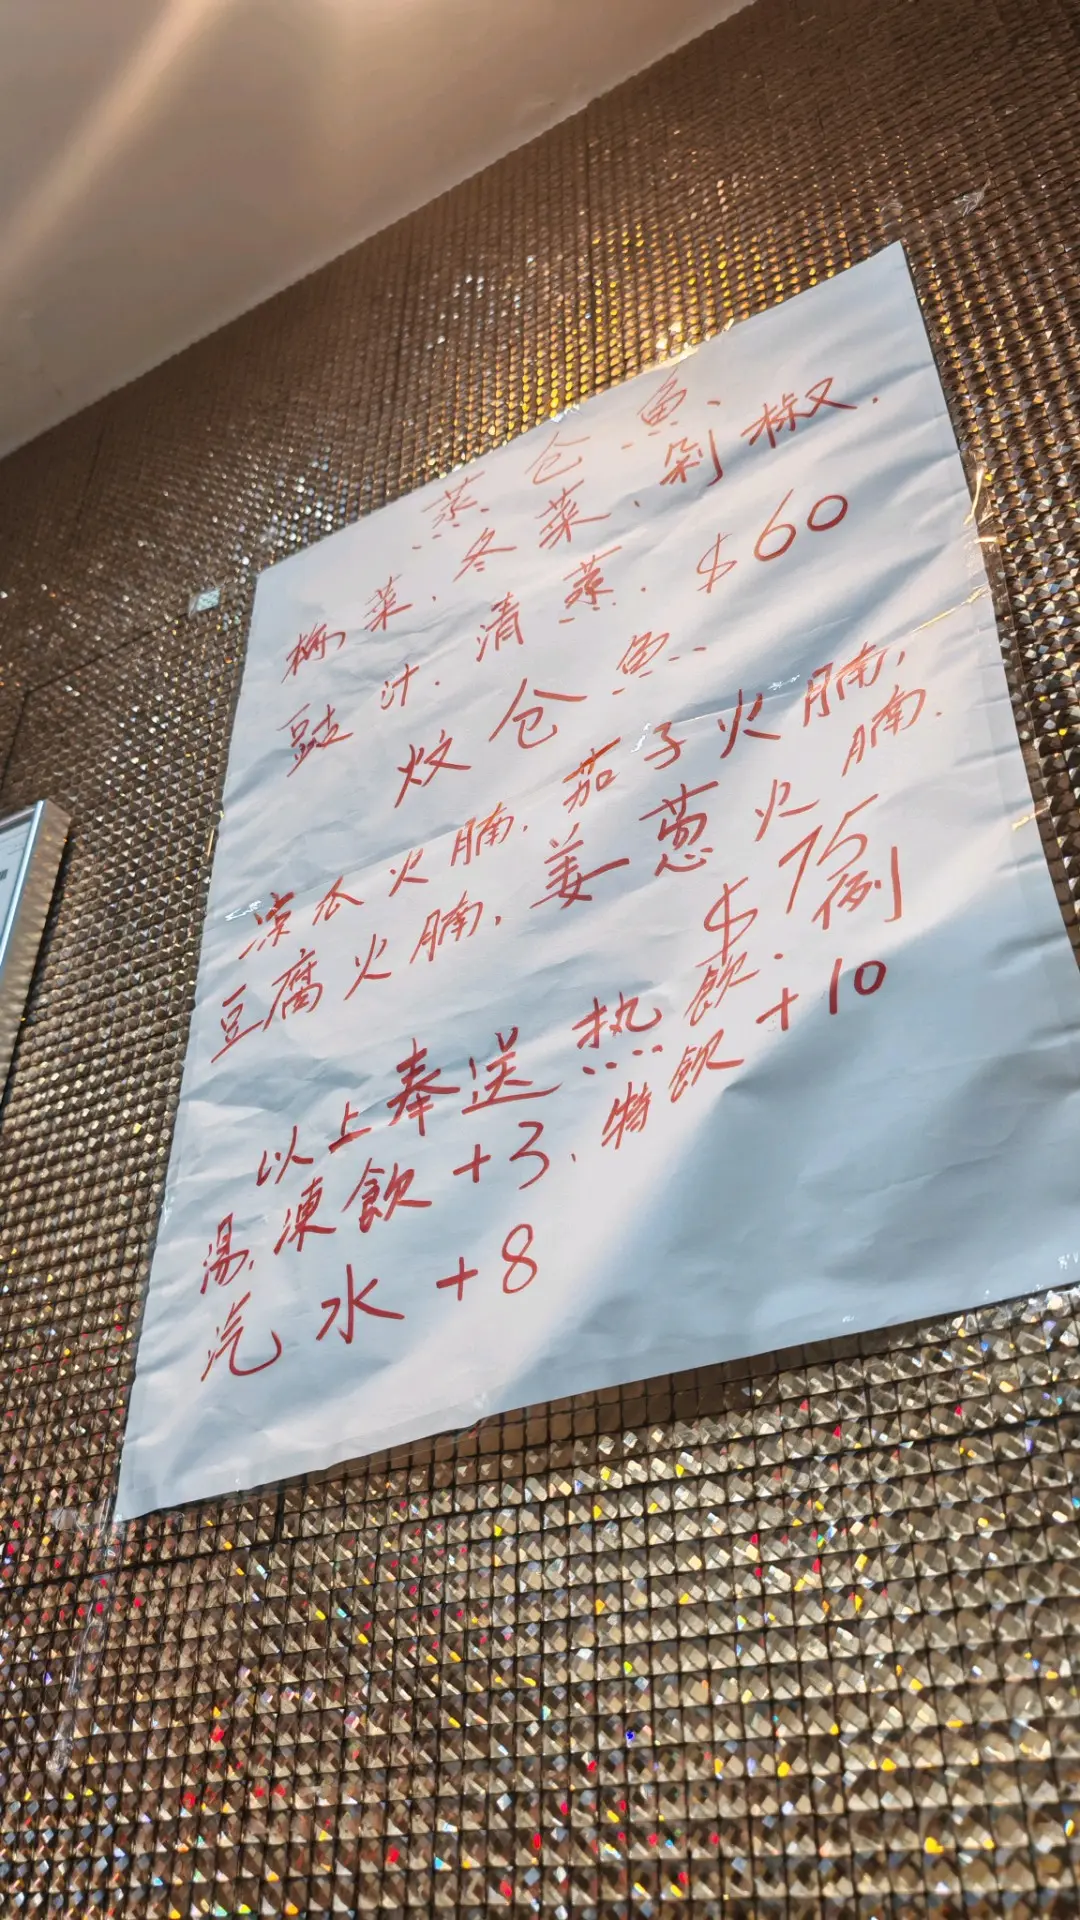 蒸仓魚、
梅菜.冬菜.剁椒.
豉汁.清蒸.$60
炆仓魚
凉瓜火腩.茄子火腩,
豆腐火腩.姜葱火腩.
$75
以上奉送热飲.例
湯,凍飲+3、特飲+10
汽水+8